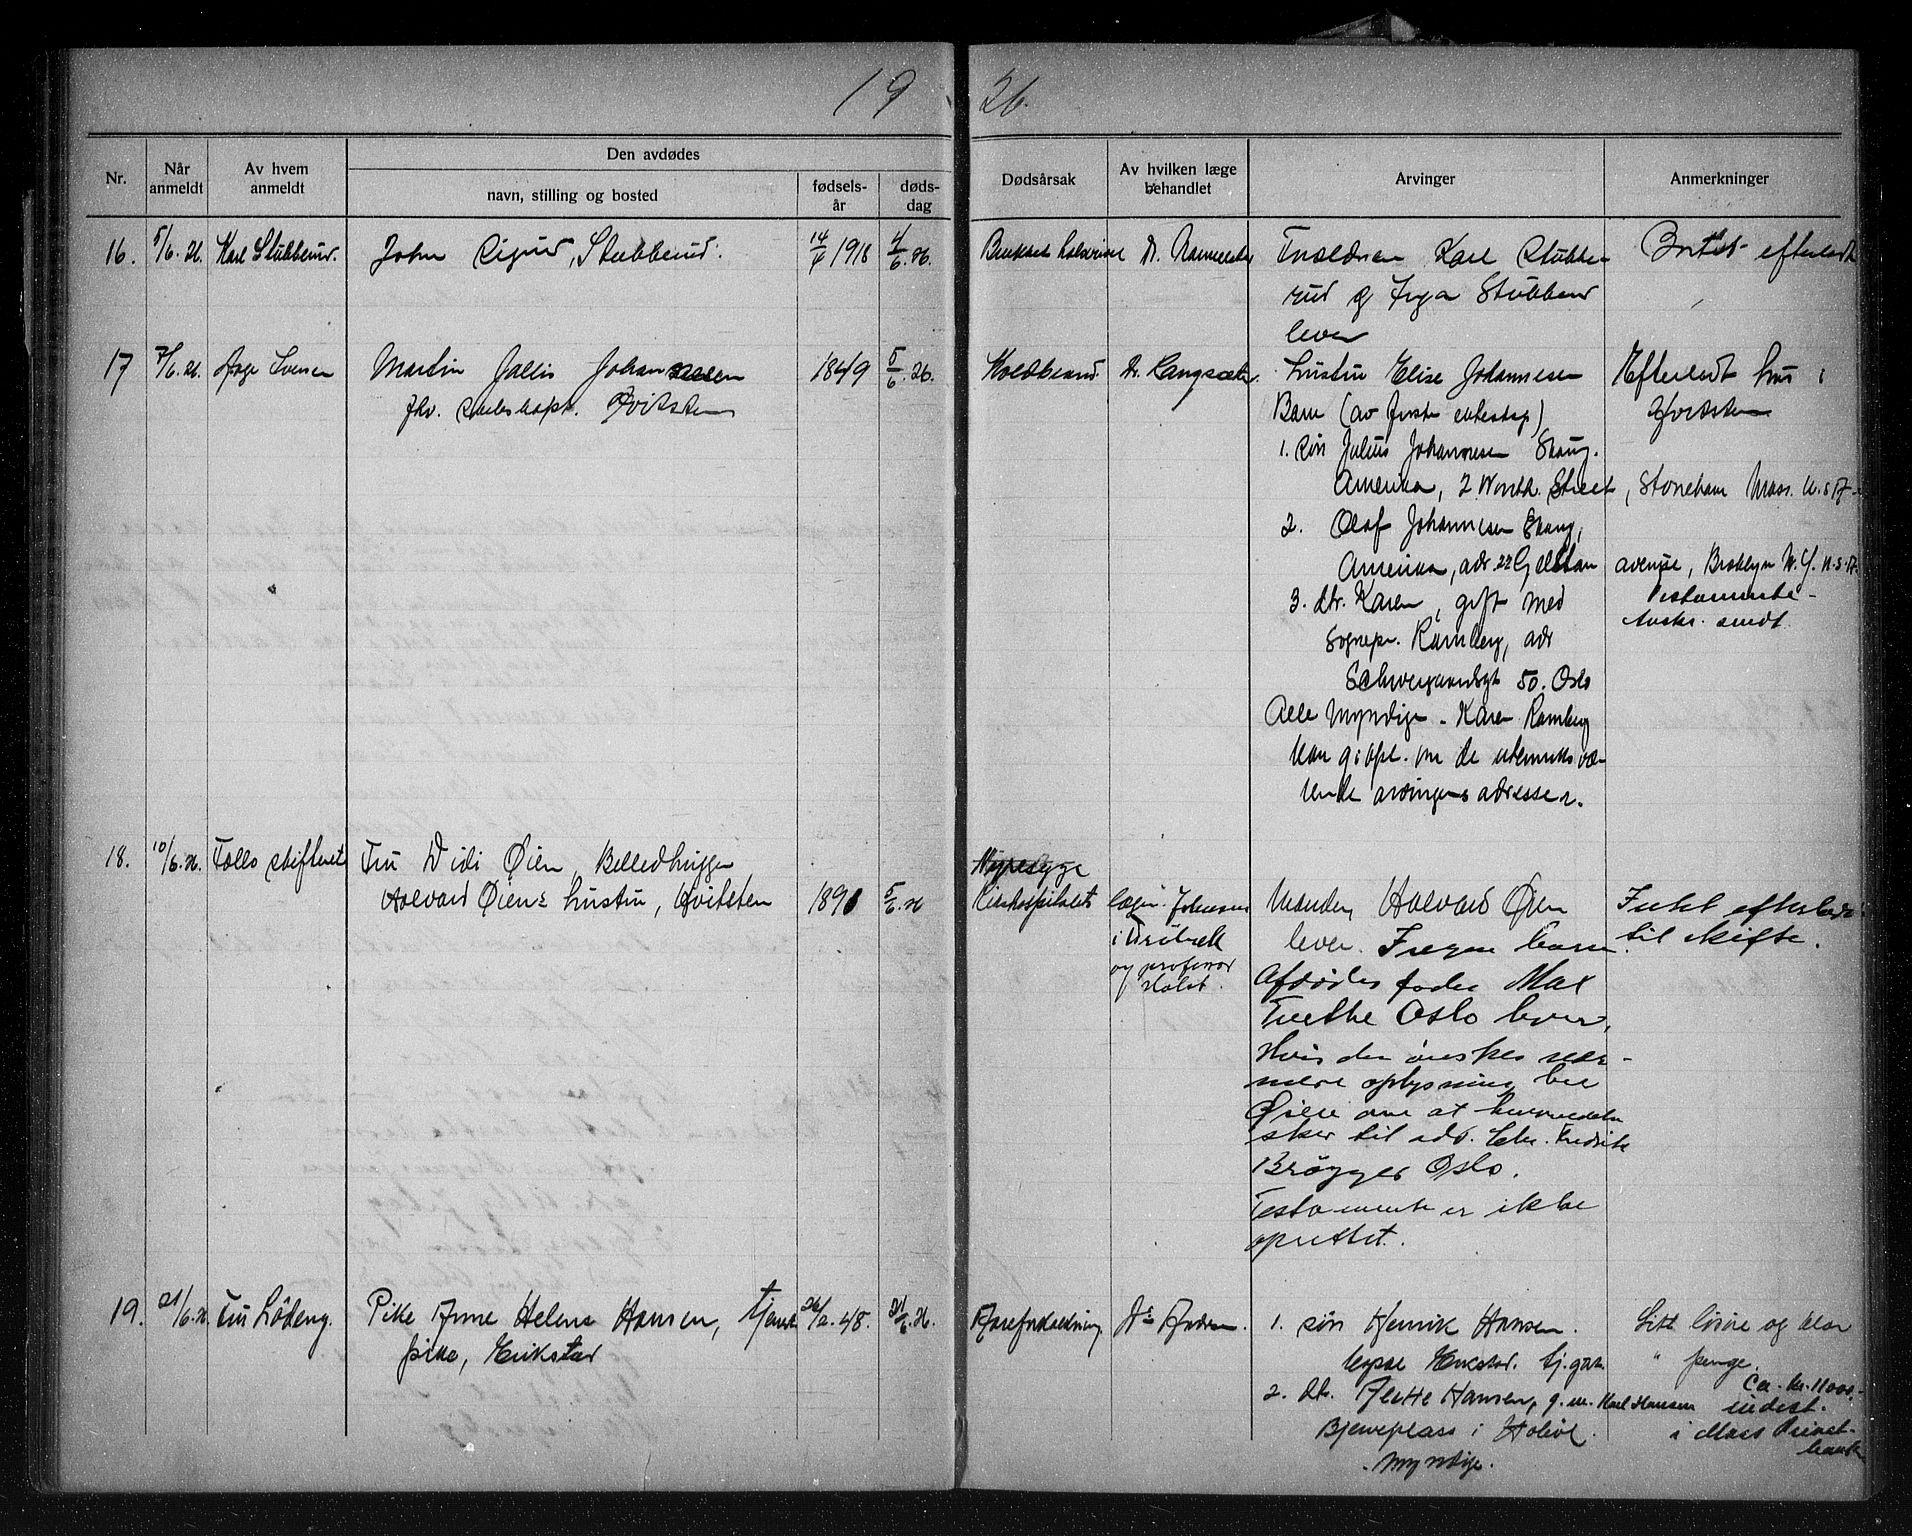 19 26.
Nr.
Når anmeldt
Av hvem anmeldt
Den avdødes
navn, stilling og bosted
fødsels-år
døds-dag
Dødsårsak
Av hvilken læge behandlet
Arvinger
Anmerkninger
16. 5/6.26. Karl Stubberud. John Sigurd, Stubberud. 14/4 1918 4/6.26.
Dr.
Forældrene Karl Stubbe-
rud og Inga Stubberud
lever
Intet efterladt
17 7/6.26. Aage Iversen Martin Julius Johannesen 1849 5/6.26.
fhv. skibskapt. Hvitsten
Koldbrand. Dr. Langsæter.
Hustru Elise Johannesen
Barn (av første ekteskap)
1. søn Julius Johannesen Skaug.
Amerika, 2 Worth. Street, Stoneham Mass. U.S.A.
2. Olaf Johannesen Skaug,
Amerika, adr. 22 Gelston avenue, Broklyn N.Y. U.S.A.
3. dtr. Karen, gift med
Sognepr. Ramberg, adr
Schweigaardsgt 50. Oslo
Alle myndige. Karen Ramberg
kan gi opl. om de utenriks væ-
rende arvingers adresser.
Efterladt hus i
Hvitsten
Testamente-
avskr. sendt
18. 10/6.26. Follo skifteret Fru Didi Øien, Billedhugger
Halvard Øiens hustru, Hvitsten 1890 5/6.26
Nyresyge
Rikshospitalet
læge Johansen
i Drøbak
og professor
Holst.
Manden, Halvard Øien
lever. Ingen barn.
Afdødes fader Max
Trethe Oslo lever.
Hvis der ønskes nær-
mere oplysning, ber
Øien om at henvendelse
sker til adv. Chr. Fredrik
Brøgger Oslo.
Testamente er ikke
oprettet.
Intet efterladt
til skifte.
19. 21/6.26 Fru Lödeng. Pike Anne Helene Hansen, tjeneste
pike, Erikstad 26/2.48. 21/6.26.
Aareforkalkning. Dr Andersen.
1. søn Henrik Hansen.
Erikstad.
2. dtr. Hansen, g.m. Karl Hansen
Bjerreplass i Hobøl.
Myndige.
Litt løsøre og klær
" penge.
Ca. kr. 1100.-
indest.
i Moss Privat-
bank